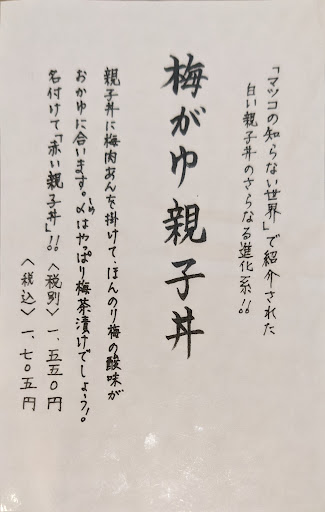 「マツコの知らない世界」で紹介された
白い親子丼のさらなる進化系!!
梅がゆ親子丼
親子丼に梅肉あんを掛けて、ほんのり梅の酸味が
おかゆに合います。〆はやっぱり梅茶漬けでしょう!。
しめ
名付けて「赤い親子丼」!!
〈税別〉一、五五〇円
〈税込〉一、七〇五円